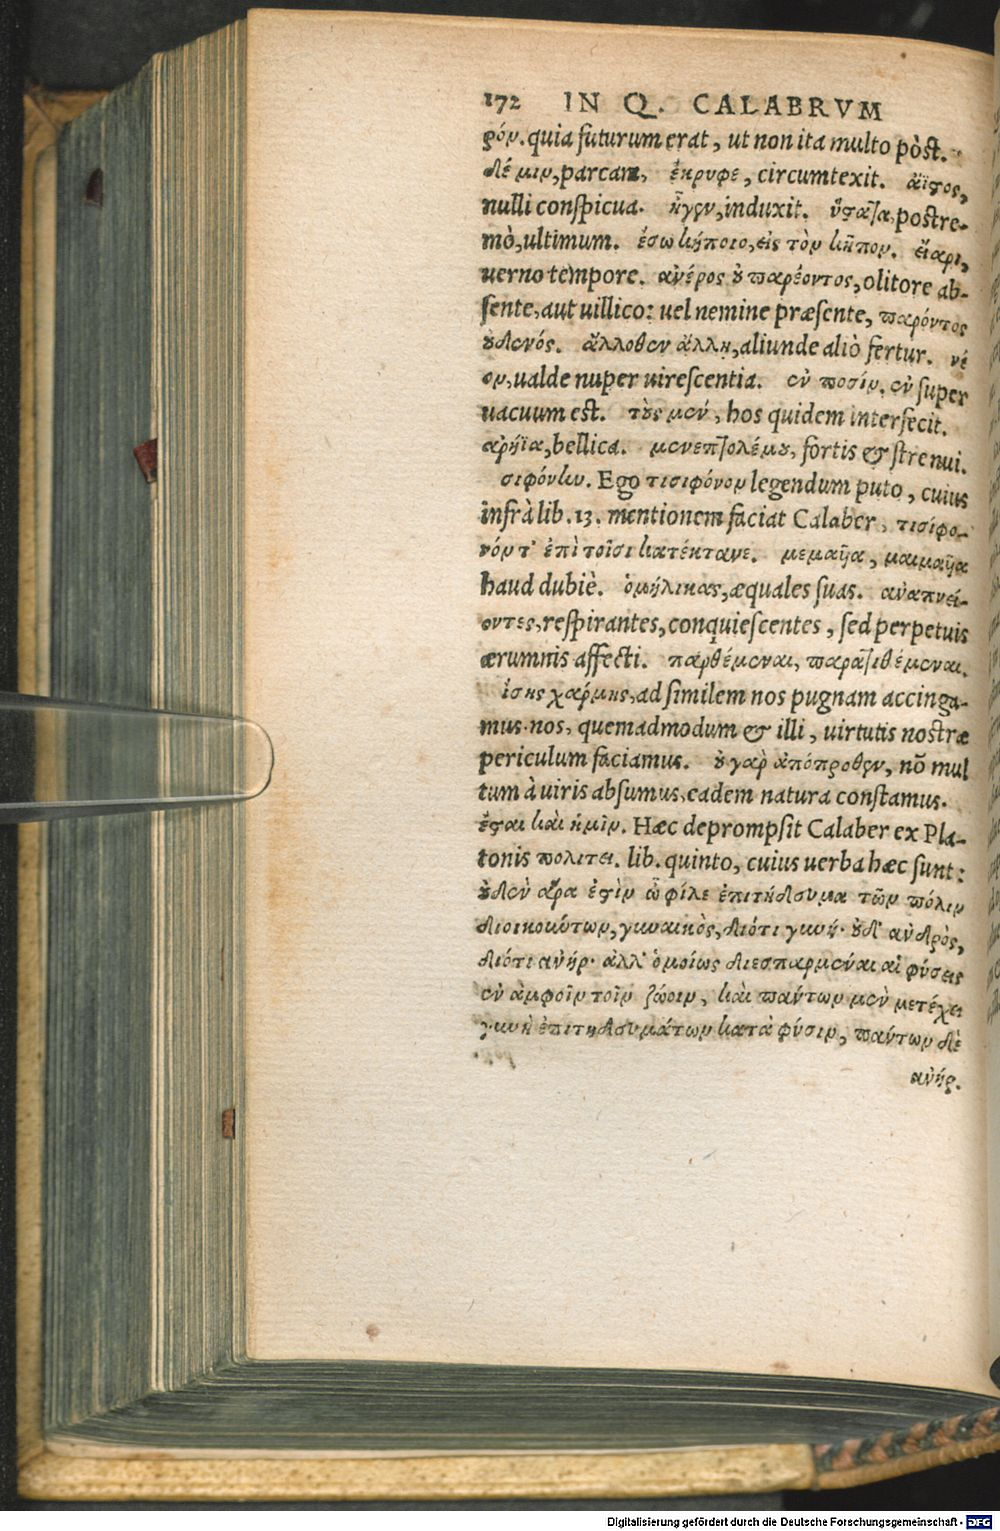 172 IN Q. CALABRVM
ρόν. quia futurum erat, ut non ita multo pòst.
δέ μιν, parcam, ἔκρυφε, circumtexit. ἄϊστος,
nulli conspicua. ἦγεν, induxit. ὕστατα, postre-
mò, ultimum. ἔσω κήποιο, εἰς τὸν κῆπον. εἴαρι,
uerno tempore. ἀνέρος οὐ παρέοντος, olitore ab-
sente, aut uillico: uel nemine præsente, παρόντος
οὐδενός. ἄλλοθεν ἄλλῃ, aliunde aliò fertur. νέ
ον, ualde nuper uirescentia. ἐν ποσίν. ἐν super
uacuum est. τοὺς μέν, hos quidem interfecit.
ἀρήϊα, bellica. μενεπτολέμου, fortis & strenui.
σιφόνην. Ego τισιφόνον legendum puto, cuius
infrà lib. 13. mentionem faciat Calaber, τισίφο-
νόν τ' ἐπὶ τοῖσι κατέκτανε. μεμαῆα, μαιμαῆα
haud dubiè. ὁμήλικας, æquales suas. ἀναπνεί-
οντες, respirantes, conquiescentes, sed perpetuis
ærumnis affecti. παρθέμεναι, παρατιθέμεναι.
ἴσης χάρμης, ad similem nos pugnam accinga-
mus. nos, quemadmodum & illi, uirtutis nostræ
periculum faciamus. οὐ γὰρ ἀπόπροθεν, nõ mul
tum à uiris absumus, eadem natura constamus.
ἔσται καὶ ἡμῖν. Hæc deprompsit Calaber ex Pla-
tonis πολιτει. lib. quinto, cuius uerba hæc sunt:
οὐδὲν ἄρα ἐστὶν ὦ φίλε ἐπιτήδευμα τῶν πόλιν
διοικούντων, γυναικὸς, διότι γυνή. οὐδ' ἀνδρὸς,
διότι ἀνήρ. ἀλλ' ὁμοίως διεσπαρμέναι αἱ φύσεις
ἐν ἀμφοῖν τοῖν ζώοιν, καὶ πάντων μὲν μετέχει
γυνὴ ἐπιτηδευμάτων κατὰ φύσιν, πάντων δὲ
ἀνήρ.
Digitalisierung gefördert durch die Deutsche Forschungsgemeinschaft - DFG